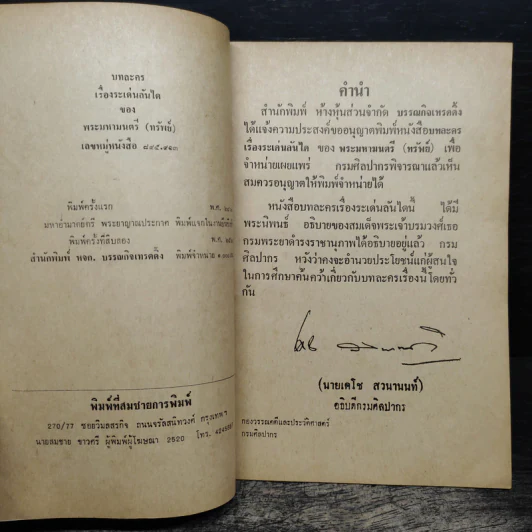 บทละคร
เรื่องระเด่นลันได
ของ
พระมหามนตรี (ทรัพย์)
เลขหมู่หนังสือ ๘๙๕.๙๑๓
พิมพ์ครั้งแรก พ.ศ.
มหาอำมาตย์ตรี พระยาญาณประกาศ พิมพ์แจกใน
พิมพ์ครั้งที่สิบสอง พ.ศ.
สำนักพิมพ์ หจก. บรรณกิจเทรดดิ้ง พิมพ์จำหน่าย
พิมพ์ที่สมชายการพิมพ์
270/77 ซอยวิมลสรกิจ ถนนจรัลสนิทวงศ์ กรุงเทพฯ
นายสมชาย ชาวศรี ผู้พิมพ์ผู้โฆษณา 2520 โทร.
คำนำ
สำนักพิมพ์ ห้างหุ้นส่วนจำกัด บรรณกิจเทรดดิ้ง
ได้แจ้งความประสงค์ขออนุญาตพิมพ์หนังสือบทละคร
เรื่องระเด่นลันได ของ พระมหามนตรี (ทรัพย์) เพื่อ
จำหน่ายเผยแพร่ กรมศิลปากรพิจารณาแล้วเห็น
สมควรอนุญาตให้พิมพ์จำหน่ายได้
หนังสือบทละครเรื่องระเด่นลันไดนี้ ได้มี
พระนิพนธ์ อธิบายของสมเด็จพระเจ้าบรมวงศ์เธอ
กรมพระยาดำรงราชานุภาพได้อธิบายอยู่แล้ว กรม
ศิลปากร หวังว่าคงจะอำนวยประโยชน์แก่ผู้สนใจ
ในการศึกษาค้นคว้าเกี่ยวกับบทละครเรื่องนี้โดยทั่ว
กัน
(นายเดโช สวนานนท์)
อธิบดีกรมศิลปากร
กองวรรณคดีและประวัติศาสตร์
กรมศิลปากร